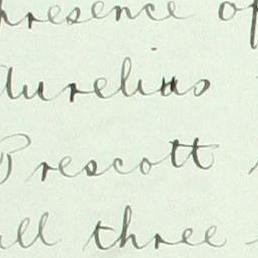 presence of
Aurelius
Prescott
all three